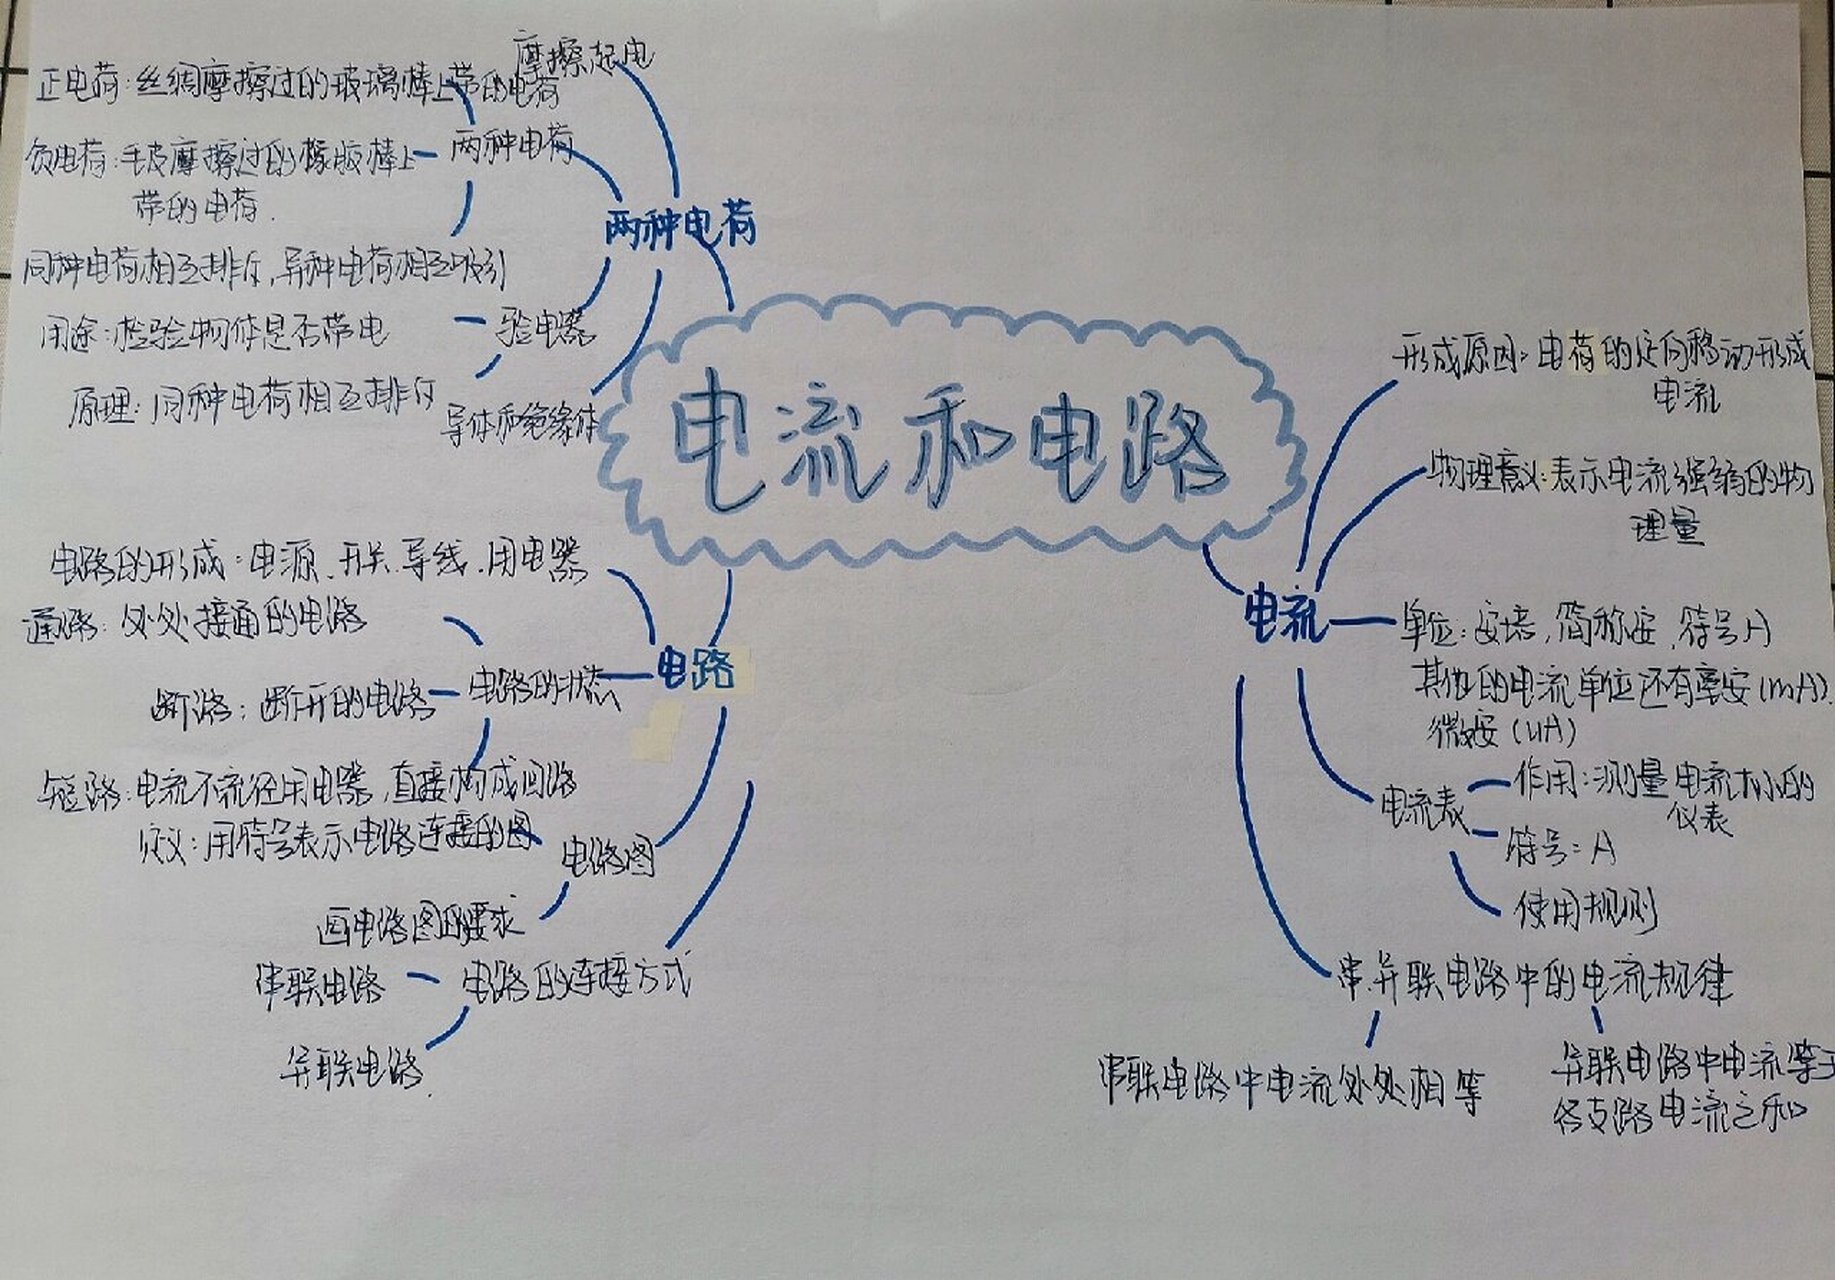 电流和电路
两种电荷
摩擦起电
两种电荷
正电荷：丝绸摩擦过的玻璃棒上带的电荷
负电荷：毛皮摩擦过的橡胶棒上
带的电荷.
同种电荷相互排斥,异种电荷相互吸引
验电器
用途：检验物体是否带电
原理：同种电荷相互排斥
导体和绝缘体
电路
电路的形成：电源、开关、导线、用电器
电路的状态
通路：处处接通的电路
断路：断开的电路
短路：电流不流经用电器,直接构成回路
电路图
定义：用符号表示电路连接的图
画电路图的要求
电路的连接方式
串联电路
并联电路.
电流
形成原因：电荷的定向移动形成
电流
物理意义：表示电流强弱的物
理量
单位：安培,简称安,符号A
其他的电流单位还有毫安(mA).
微安(uA)
电流表
作用：测量电流大小的
仪表
符号：A
使用规则
串.并联电路中的电流规律
串联电路中电流处处相等
并联电路中电流等于
各支路电流之和